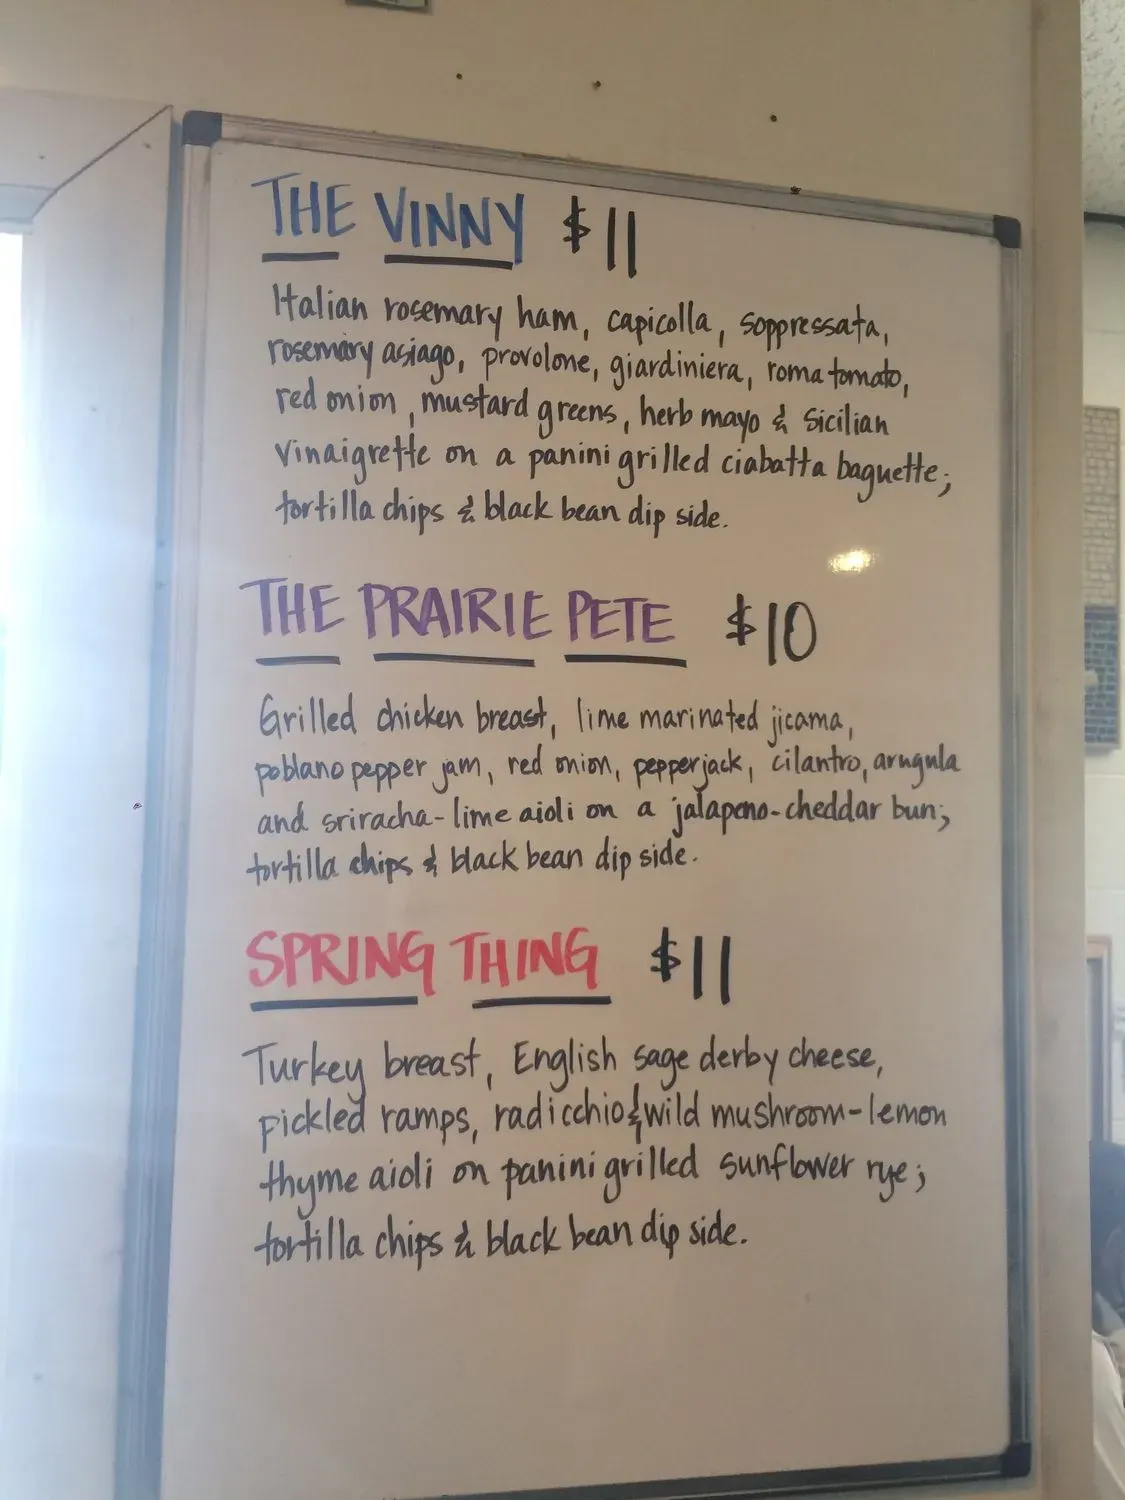 THE VINNY $11
Italian rosemary ham, capicolla, soppressata,
rosemary asiago, provolone, giardiniera, roma tomato,
red onion, mustard greens, herb mayo & Sicilian
vinaigrette on a panini grilled ciabatta baguette;
tortilla chips & black bean dip side.
THE PRAIRIE PETE $10
Grilled chicken breast, lime marinated jicama,
poblano pepper jam, red onion, pepperjack, cilantro, arugula
and sriracha-lime aioli on a jalapeno-cheddar bun;
tortilla chips & black bean dip side.
SPRING THING $11
Turkey breast, English sage derby cheese,
pickled ramps, radicchio & wild mushroom-lemon
thyme aioli on panini grilled sunflower rye;
tortilla chips & black bean dip side.